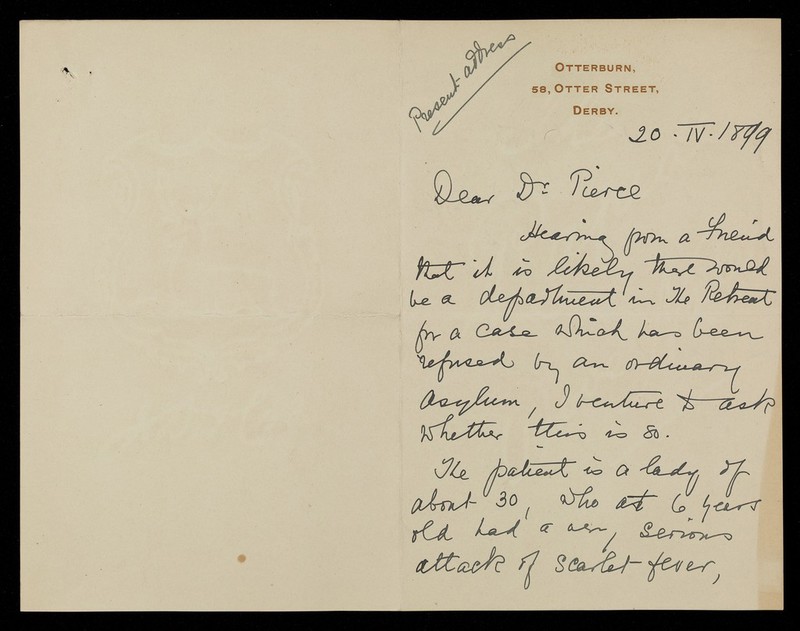 Present address
OTTERBURN,
58, OTTER STREET,
DERBY.
20 . IV . 1899
Dear Dr. Pierce
Hearing from a friend
that it is likely there would
be a department in The Retreat
for a case which has been
refused by an ordinary
asylum, I venture to ask
whether this is so.
The patient is a lady of
about 30, who at 6 years
old had a very serious
attack of scarlet fever,